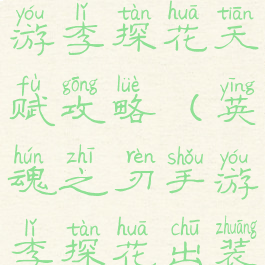 yóu lǐ tàn huā tiān
游李探花天
fù gōng lüè yīng
赋攻略(英
hún zhī rèn shǒu yóu
魂之刃手游
lǐ tàn huā chū zhuāng
李探花出装